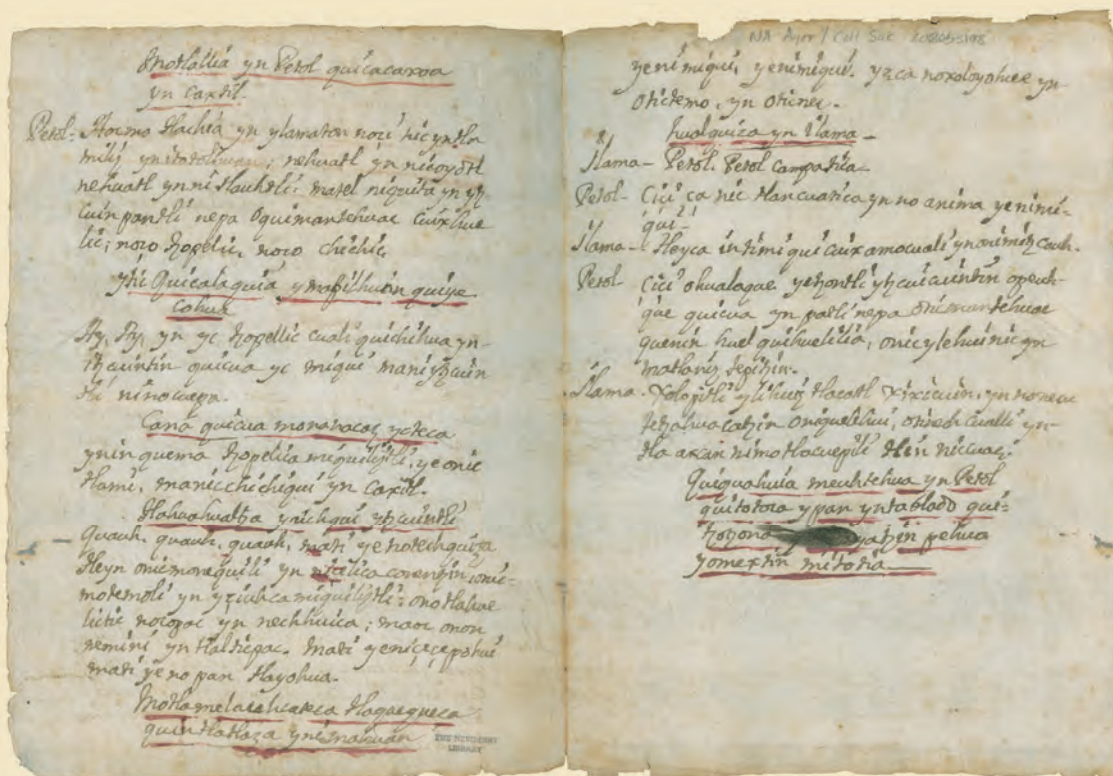 Motlallia yn Petol quicacaxoa
yn caxtil
Petol- Aocmo tlachia yn ylamaton noço nic yntla
milij yn itotolhuan; nehuatl yn nicoyotl
nehuatl ynni tlauhtli: matel niquita yn ytz
cuinpantli nepa oquimantehuac cuix hue
lic; noço tzopelic, noço chichic,
ytic Quicalaquia ymapilhuan quiye
cohua
Ay, Ay, yn yc tzopellic cuali quichihua yn
itzcuintin quicua yc miqui mani ytzcuin
tli ninocuepa.
Cana quicua monanacaz ycteca
ynin quema tzopelica miquiliztli, ye onic
tlami, manicchichiqui yn caxtil.
tlahuahualtza ynichqui ytzcuintli
Quauh, quauh, quauh, mati ye notechquiza
tleyn onicmonequili yn corentzin, onic-
motemoli yn yziuhca miquiliztli: onotlahue
litic noçopac yn nechhuica; maoc onon
nemini yn tlalticpac. mati yeniçeçepohui
mati ye no pan tlayohua.
Motlamelauhcateca tlaquequeça
quintlatlaza ynimahuan
THE NEWBERRY
LIBRARY
NA Ayer / Coll Sac
yenimiqui, yenimiqui. yzca noxoloyohue yn
otictemo, yn oticnec.
hualquiza yn Ilama-
Ilama- Petol. Petol campatica
Petol- Cici ca nic tlancuatica yn no anima yenimi-
qui-
Ilama- tleyca intimiqui cuix amocuali ynonimitzcauh.
Petol Cici ohualaque yetzontli ytzcuicuintin opeuh-
que quicua yn patli nepa oticmantehuac
quenin huel quihuelilia, onicylehui nic yn
matlaniz tepitzin.
Ilama- xolopitli ylihuiz tlacatl xixicuin, yn noneuc
tetzahuacatzin oniquelehui, otinechcualli yn-
tla axcan nimotlacuepili tlein nicuaz.
Quiquahuia meuhtehua yn Petol
quitotoca ypan yntablado qui-
tzotzona yatzin pehua
yomextin mitotia